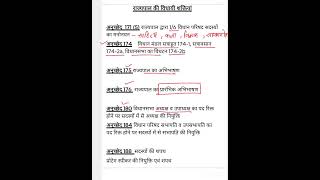 राज्यपाल की विधायी शक्तियां
अनुच्छेद 171 (5) राज्यपाल द्वारा 1/6 विधान परिषद सदस्यों
का मनोनयन - साहित्य, कला, विज्ञान,
अनुच्छेद 174 विधान मंडल सत्राहूत 174-1, सत्रावसान
174-2a, विधानसभा का विघटन 174-2b
अनुच्छेद 175 राज्यपाल का अभिभाषण
अनुच्छेद 176 राज्यपाल का प्रारंभिक अभिभाषण
अनुच्छेद 180 विधानसभा अध्यक्ष व उपाध्यक्ष का पद रिक्त
होने पर सदस्यों में से अध्यक्ष की नियुक्ति
अनुच्छेद 184 विधान परिषद सभापति व उपसभापति का
पद रिक्त होने पर सदस्यों में से सभापति की नियुक्ति
अनुच्छेद 188 सदस्यों की शपथ
प्रोटेम स्पीकर की नियुक्ति एवं शपथ